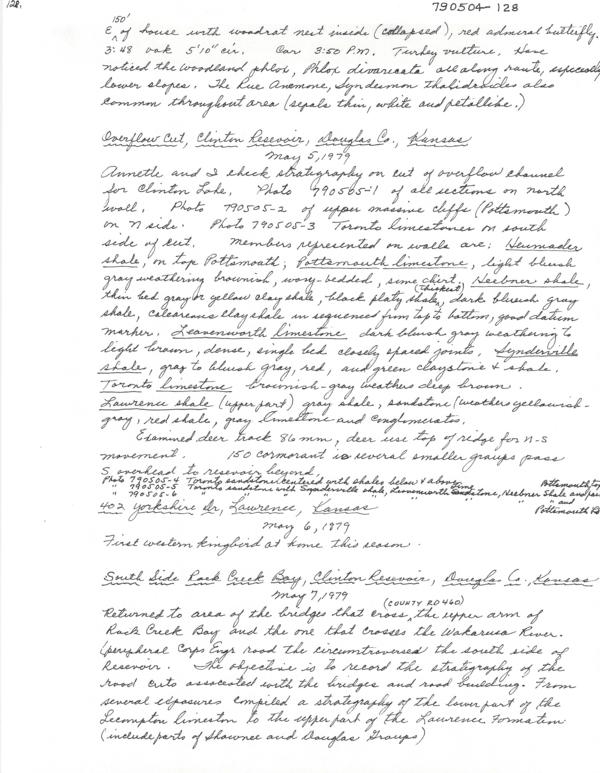 128.
790504-128
150'
E of house with woodrat nest inside (collapsed), red admiral butterfly.
3:48 oak 5'10" cir. Car 3:50 P.M. Turkey vulture. Have
noticed the woodland phlox, Phlox divaricata all along route, especially
lower slopes. The Rue Anemone, Syndesmon thalidroides also
common throughout area (sepals thin, white and petallike.)
Overflow Cut, Clinton Resevoir, Douglas Co., Kansas
May 5, 1979
Annette and I check stratigraphy on cut of overflow channel
for Clinton Lake. Photo 790505-1 of all sections on north
wall. Photo 790505-2 of upper massive cliffs (Pottsmouth)
on N side. Photo 790505-3 Toronto limestones on south
side of cut. Members represented on walls are: Heumader
shale, on top Pottsmouth; Pottsmouth limestone, light bluish
gray weathering brownish, wavy-bedded, some chert. Heebner shale,
(thickest)
thin bed gray or yellow clay shale, black platy shale, dark blueish gray
shale, calcareous clay shale in sequences from top to bottom, good datum
marker. Leavenworth limestone dark bluish gray weathering to
light brown, dense, single bed closely spaced joints. Synderville
shale, gray to bluish gray, red, and green claystone & shale.
Toronto limestone brownish-gray weathers deep brown.
Lawrence shale (upper part) gray shale, sandstone (weathers yellowish-
gray, red shale, gray limestone and conglomerates.
Examined deer track 86 mm, deer use top of ridge for N-S
movement. 150 cormorant in several smaller groups pass
S overhead to resevoir beyond.
Photo 790505-4 Toronto sandstone centered with shales below & above
" 790505-5 Toronto sandstone with Synderville shale, Leavenworth limestone, Heebner Shale and
" 790505-6 " " " " " and
Pottsmouth
402 Yorkshire Dr, Lawrence, Kansas
May 6, 1979
First western kingbird at home this season.
South Side Rock Creek Bay, Clinton Resevoir, Douglas Co., Kansas
May 7, 1979
(COUNTY RD 460)
Returned to area of the bridges that cross the upper arm of
Rock Creek Bay and the one that crosses the Wakarusa River.
(peripheral Corps Engr road the circumtraverses the south side of
Resevoir. The objective is to record the stratigraphy of the
road cuts associated with the bridges and road building. From
several exposures compiled a stratigraphy of the lower part of the
Lecompton limeston to the upper part of the Lawrence Formation
(include parts of Shawnee and Douglas Groups)